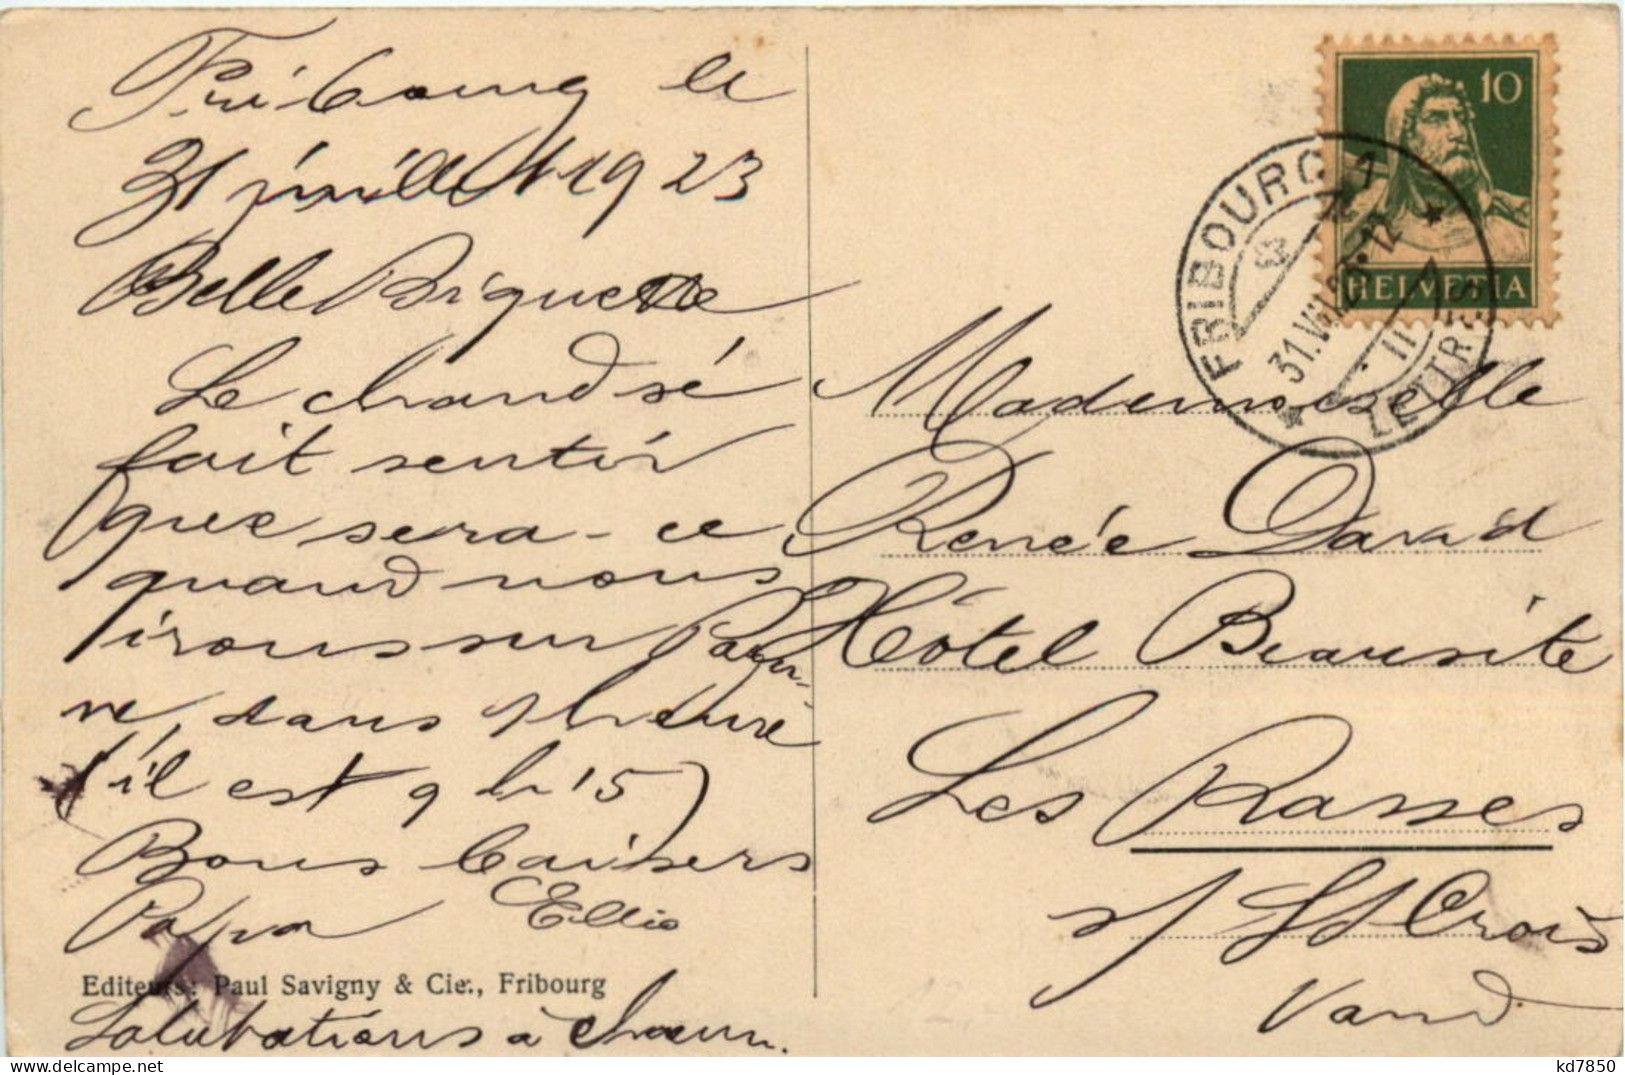 Fribourg le
31 juillet 1923
Belle Briquette
Le chaud sé
fait sentir
que sera-ce
quand nous
irons sur Payer-
ne, dans 1 heure
(il est 9 h 15)
Bons baisers
Papa Ellio
Editeurs: Paul Savigny & Cie., Fribourg
Salutations à chacun.
10
HELVETIA
FRIBOURG 1
31.VII.23.12
LETTRES
Mademoiselle
Renée David
Hôtel Beausite
Les Rasses
s/ St Croix
Vaud
kd7850